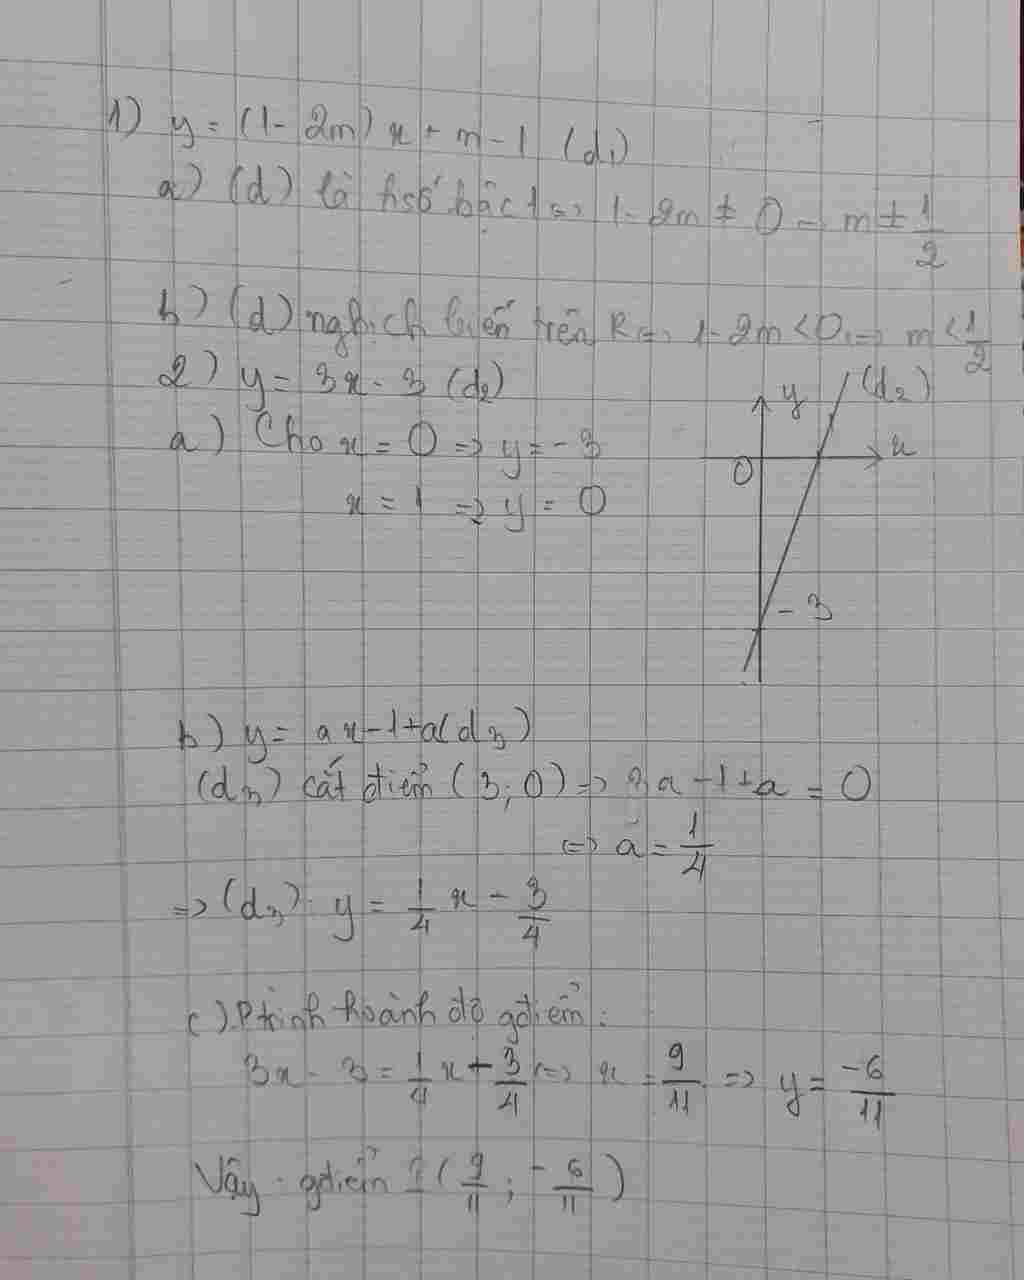 1) y = (1 - 2m) x + m - 1 (d₁)
a) (d) là hsố bậc 1 => 1 - 2m ≠ 0 - m ≠ 1/2
b) (d) nghịch biến trên R => 1 - 2m < 0 => m < 1/2
2) y = 3x - 3 (d₂)
a) Cho x = 0 => y = -3
x = 1 => y = 0
y
(d₂)
x
0
-3
b) y = ax - 1 + a (d₃)
(d₃) cắt điểm (3; 0) => 3a - 1 + a = 0
<=> a = 1/4
=> (d₃): y = 1/4 x - 3/4
c) Ptrình hoành độ gđiểm:
3x - 3 = 1/4 x + 3/4 <=> x = 9/11 => y = -6/11
Vậy gđiểm I (9/11; -6/11)